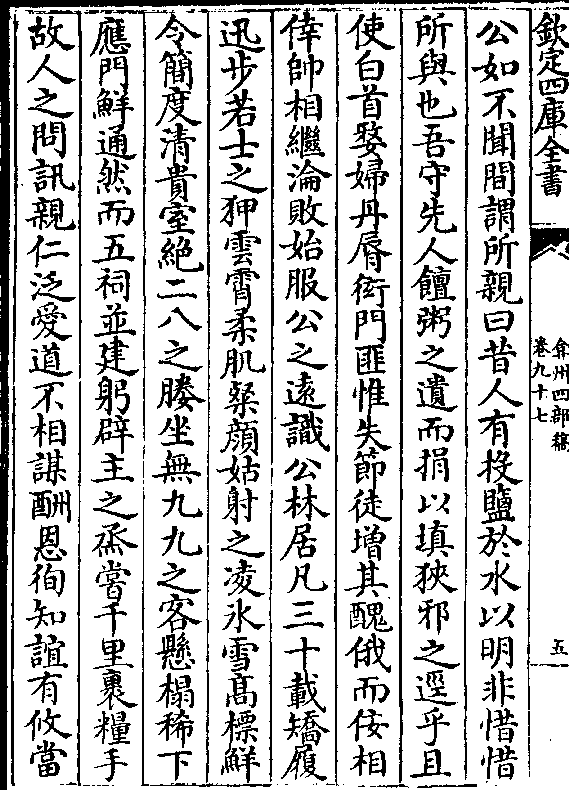 欽定四庫全書
弇州四部稿
卷九十七
五
公如不聞間謂所親曰昔人有投鹽於水以明非惜惜
所與也吾守先人饘粥之遺而捐以填狹邪之逕乎且
使白首嫠婦丹脣衒門匪惟失節徒增其醜俄而佞相
倖帥相繼淪敗始服公之遠識公林居凡三十載矯履
迅步若士之狎雲霄柔肌粲顔姑射之凌氷雪髙標鮮
令簡度清貴室絶二八之媵坐無九九之客懸榻稀下
應門鮮通然而五祠並建躬辟主之烝嘗千里裹糧手
故人之問訊親仁泛愛道不相謀酬恩徇知誼有攸當